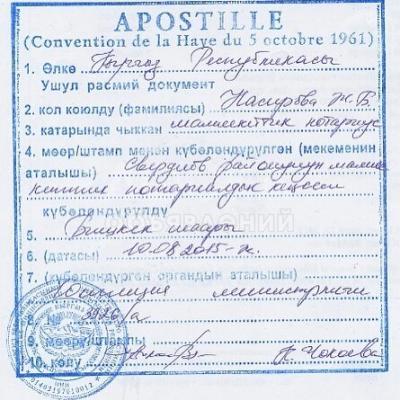 APOSTILLE
(Convention de la Haye du 5 octobre 1961)
1. Өлкө Кыргыз Республикасы
Ушул расмий документ
2. кол коюлду (фамилиясы) Насирова Ж.В.
3. катарында чыккан мамлекеттик нотариус
4. мөөр/штамп менен күбөлөндүрүлгөн (мекеменин
аталышы) Свердлов районунун мамле
кеттик нотариалдык кеңсеси
күбөлөндүрүлдү
5. Бишкек шаары
6. (датасы) 10.08.2015-ж.
7. (күбөлөндүргөн органдын аталышы)
Юстиция министрлиги
8. № 3926/а
9. мөөрү/штампы
10. колу